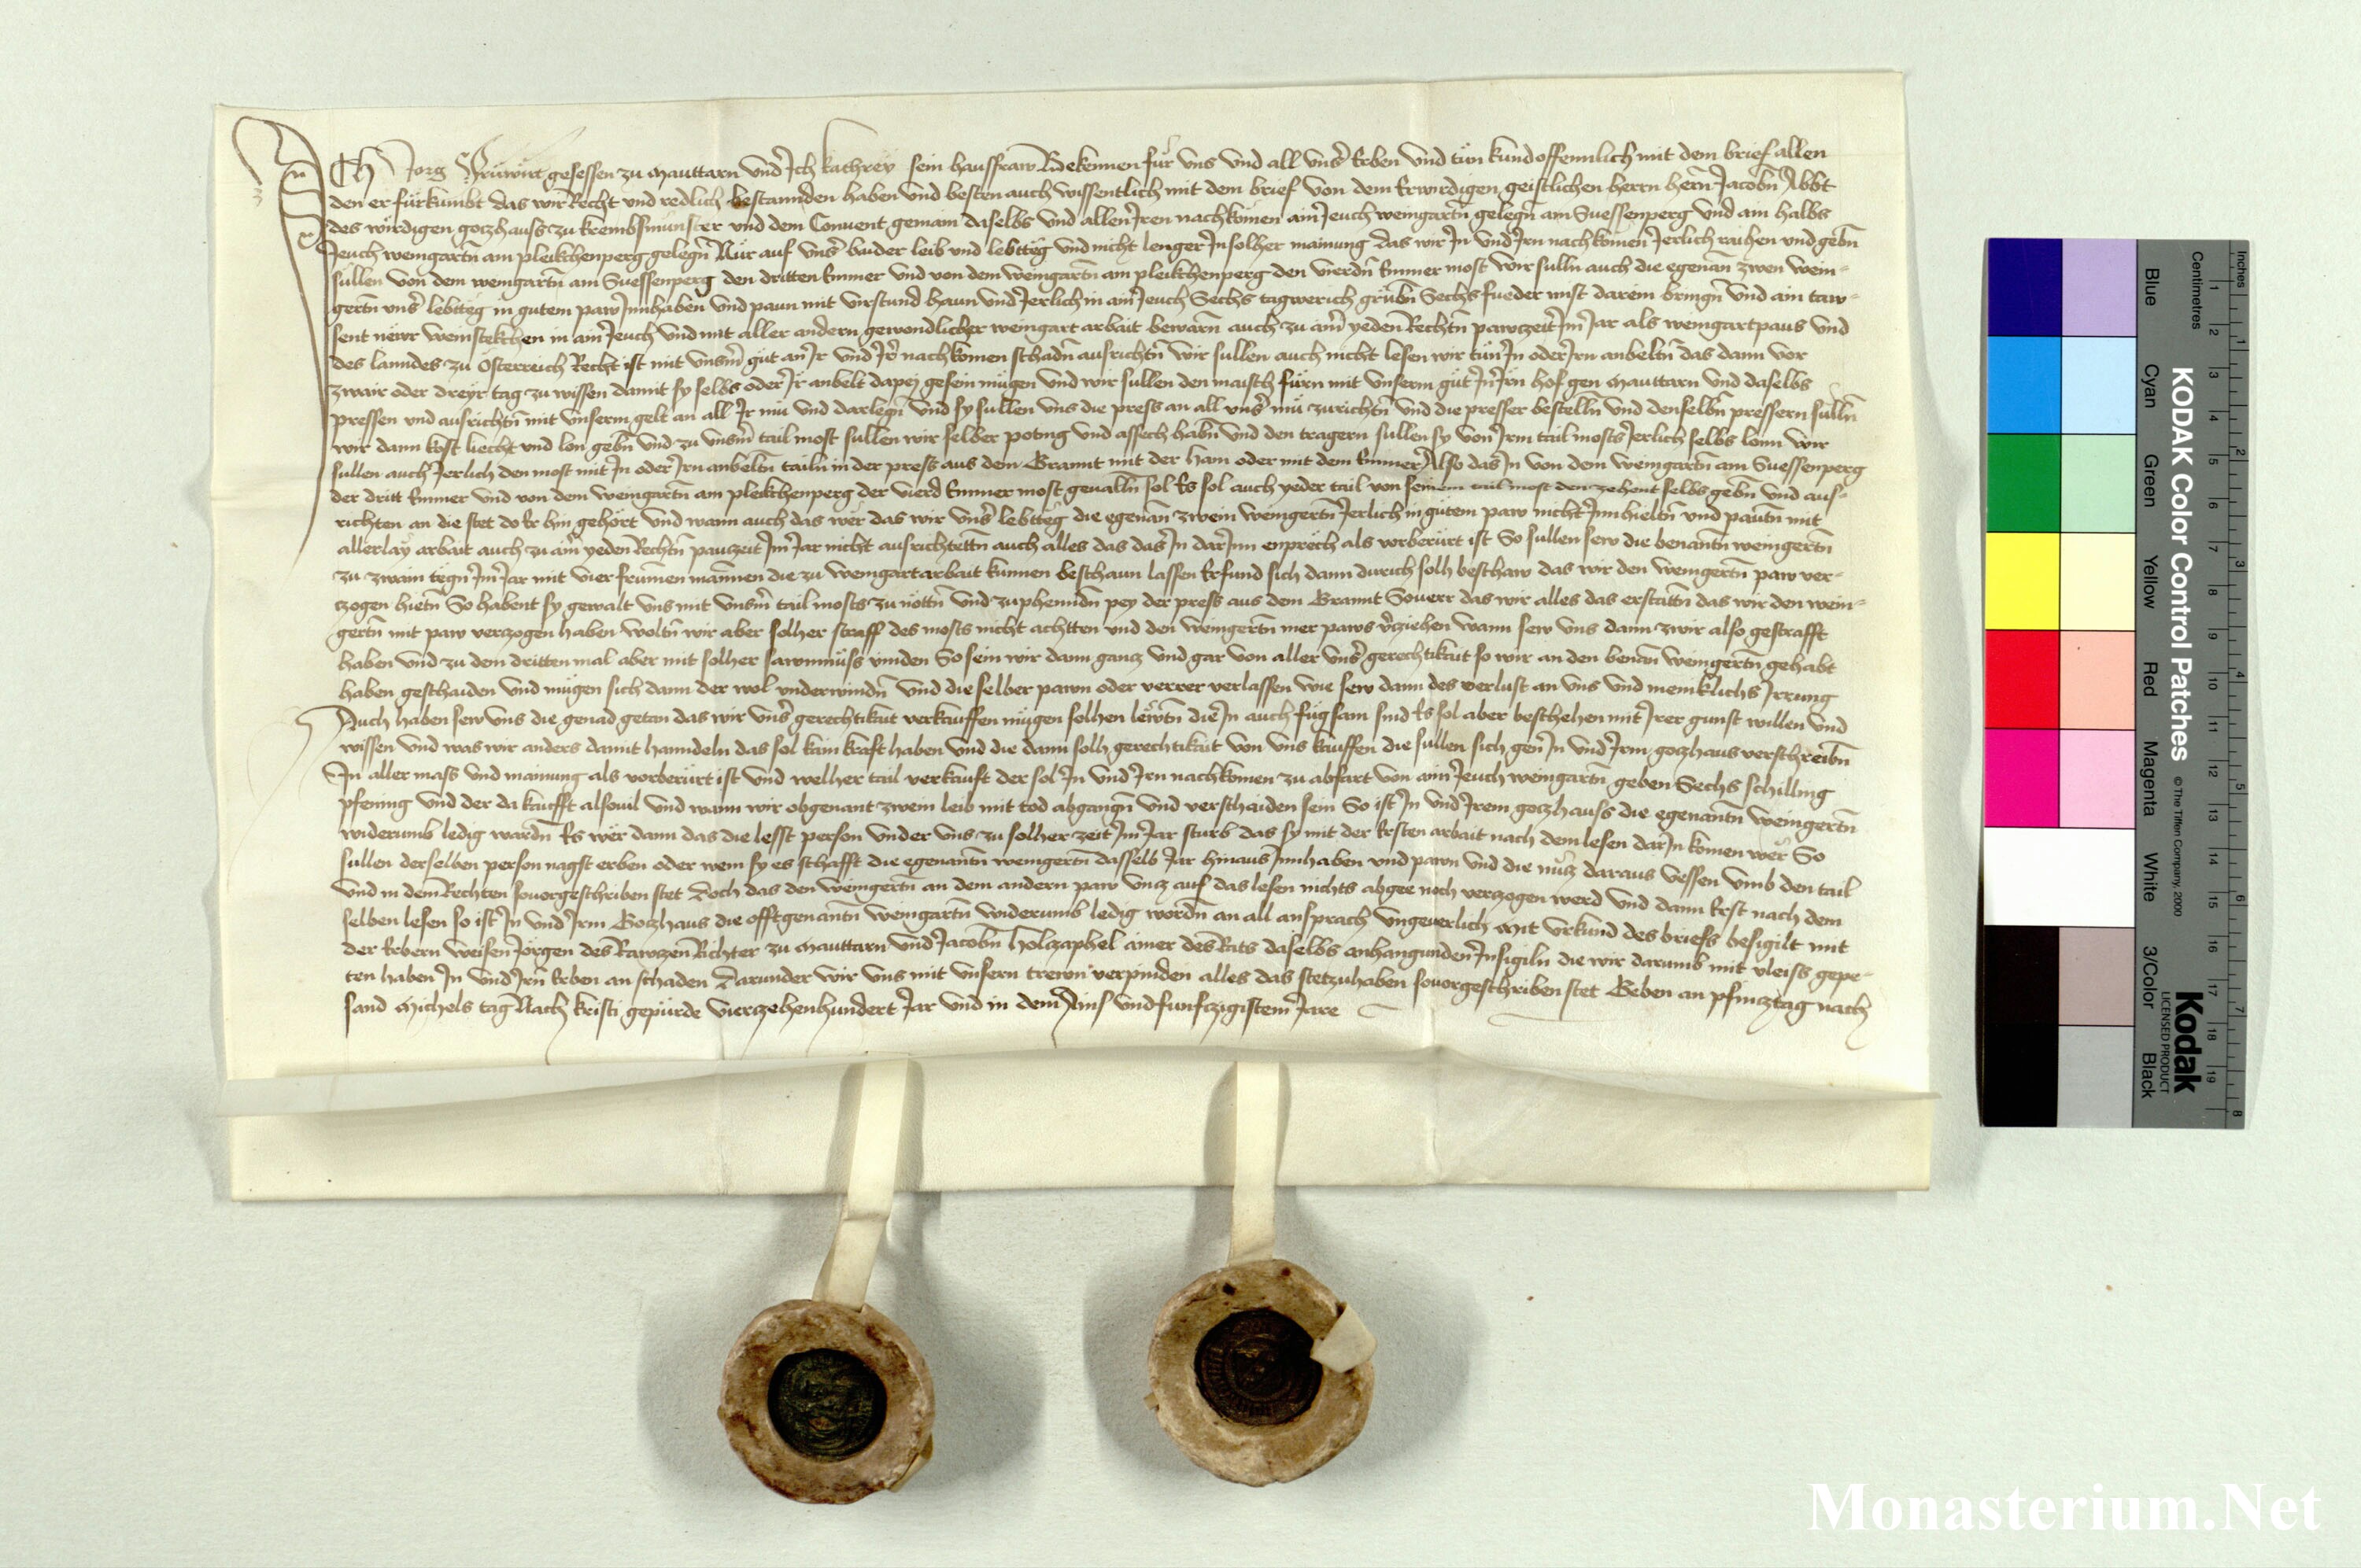 Ich Jorg gesessen zu Mauttarn und Ich kathrey sein hausfraw Bekennen für uns und all unser Erben und tün kund offennlich mit dem brief allen
den er fürkumbt das wir Recht und redlich bestannden haben und besten auch wissentlich mit dem brief von dem Erwirdigen geistlichen herrn hern Jacobn Abbt
des wirdigen gotzhauss zu krembsmünster und dem Convent gemain daselbs und allen Iren nachkömen ain Jeuch weingartn gelegn am Suessenperg und ain halbs
Jeuch weingartn am pleikchenperg gelegn Nür auf unser baider leib und lebtteg und nicht lenger In solher mainung das wir In und Irn nachkomen Jerlich raihen und gebn
süllen von dem weingartn am Suessenperg den dritten Emmer und von dem weingartn am pleikchenperg den vierdn Emmer most wir sulln auch die egenan zwen wein-
gertn unser lebtteg in gutem paw Innhaben und paun mit virstund haun und Jerlich in ain Jeuch Sechs tagwerich grübn Sechs fueder mist darein bringn und ain taw-
sent newr weinstekchen in ain Jeuch und mit aller andern gewondlicher weingart arbait bewarn auch zu aim yeden Rechtn pawzeit Im Jar als weingartpaus und
des lanndes zu Österreich Recht ist mit unserm güt an Ir und Irer nachkomen schadn ausrichtn wir sullen auch nicht lesen wir tün In oder Irn anbeltn das dann vor
zwair oder dreyr tag zu wissen damit sy selbs oder Ir anbelt dapej gesein mügen und wir sullen den maisch fürn mit unserm güt In Irn hof gen Mauttarn und daselbs
pressen und ausrichtn mit unserm gelt an all Ir mü und darlegn und sy sullen uns die press an all unser mü zurichtn und die presser bestelln und denselbn pressern sülln
wir dann kost liecht und lon gebn und zu unserm tail most sullen wir selber poting und assech habn und den tragern sullen sy von Irm tail mosts Jerlich selbs lonn wir
sullen auch Jerlich den most mit In oder Irn anbeltn tailn in der press aus dem Grannt mit der ham oder mit dem Emmer Also das In von dem weingartn am Suessenperg
der dritt Emmer und von dem weingartn am pleikchenperg der vierd Emmer most gevalln sol Es sol auch yeder tail von seinem tail most den zehent selbs gebn und aus-
richten an die stet do Er hin gehört und wann auch das wer das wir unser lebtteg die egenan zwein weingertn Jerlich in gütem paw nicht Innhieltn und pautn mit
allerlay arbait auch zu aim yeden Rechtn pauzeit Im Jar nicht ausrichtettn auch alles das das In darInn enprech als vorberürt ist So sullen sew die benantn weingertn
zu zwain tegn Im Jar mit vier frumen mannen die zu weingartarbait künnen beschaun lassen Erfund sich dann durich solh beschaw das wir den weingertn paw ver-
tzogen hietn So habent sy gewalt uns mit unserm tail mosts zu nöttn und zu phenndn pey der press aus dem Grannt Souerr das wir alles das erstattn das wir den wein-
gertn mit paw verzogen haben woltn wir aber solher straff des mosts nicht achtten und den weingertn mer paws verziehen wann sew uns dann zwir also gestrafft
haben und zu dem dritten mal aber mit solher sawmnüss vinden So sein wir dann ganz und gar von aller unser gerechtikait so wir an den benan weingertn gehabt
haben geschaiden und mügen sich dann der wol underwindn und die selber pawn oder verrer verlassen wie sew dann des verlust an uns und meniklichs Irrung
Auch haben sew uns die genad getan das wir unser gerechtikait verkauffen mügen solhen lewtn die In auch fügsam sind Es sol aber beschehen mit Irer gunst willen und
wissen und was wir anders damit hanndeln das sol kain kraft haben und die dann solh gerechtikait von uns kauffen die sullen sich gen In und Irm gotzhaus verschreibn
In aller mass und mainung als vorberürt ist und welher tail verkauft der sol In und Irn nachkomen zu abfart von aim Jeuch weingartn geben Sechs schilling
pfening und der da kaufft alsouil und wann wir obgenant zwen leib mit tod abgangn und verschaiden sein So ist In und Irem gotzhauss die egenantn weingertn
widerumb ledig wardn Es wer dann das die lesst person under uns zu solher zeit Im Jar sturb das sy mit der Ersten arbait nach dem lesen darIn komen wer So
sullen derselben person nagst erben oder wem sy es schafft die egenantn weingertn dasselb Jar hinaus Innhaben und pawn und die nutz daraus vessen umb den tail
und in dem Rechten so vorgeschriben stet Doch das den weingertn an dem andern paw untz auf das lesen nichts abgee noch verzogen werd und dann Erst nach dem
selben lesen so ist In und Irm Gotzhaus die offtgenantn weingartn widerumb ledig wordn an all ansprach ungeverlich Mit urkund des briefs besigilt mit
der Erbern weisen Jörgen des Rawzen Richter zu Mauttarn und Jacobn Holtzaphel ainer des Rats daselbs anhangunden Insigiln die wir darumb mit vleiss gepe-
ten haben In und Irn Erben an schaden Darunder wir uns mit unsern trewn verpinden alles das stetzuhaben so vorgeschriben stet Geben an pfinztag nach
sand Michels tag Nach kristi gepürde vierzehenhundert Jar und in dem Ains und funfczigistem Jare
KODAK Color Control Patches
© The Tiffen Company, 2000
Kodak
LICENSED PRODUCT
Inches 1 2 3 4 5 6 7 8
Centimetres 1 2 3 4 5 6 7 8 9 10 11 12 13 14 15 16 17 18 19
Blue Cyan Green Yellow Red Magenta White 3/Color Black
Monasterium.Net